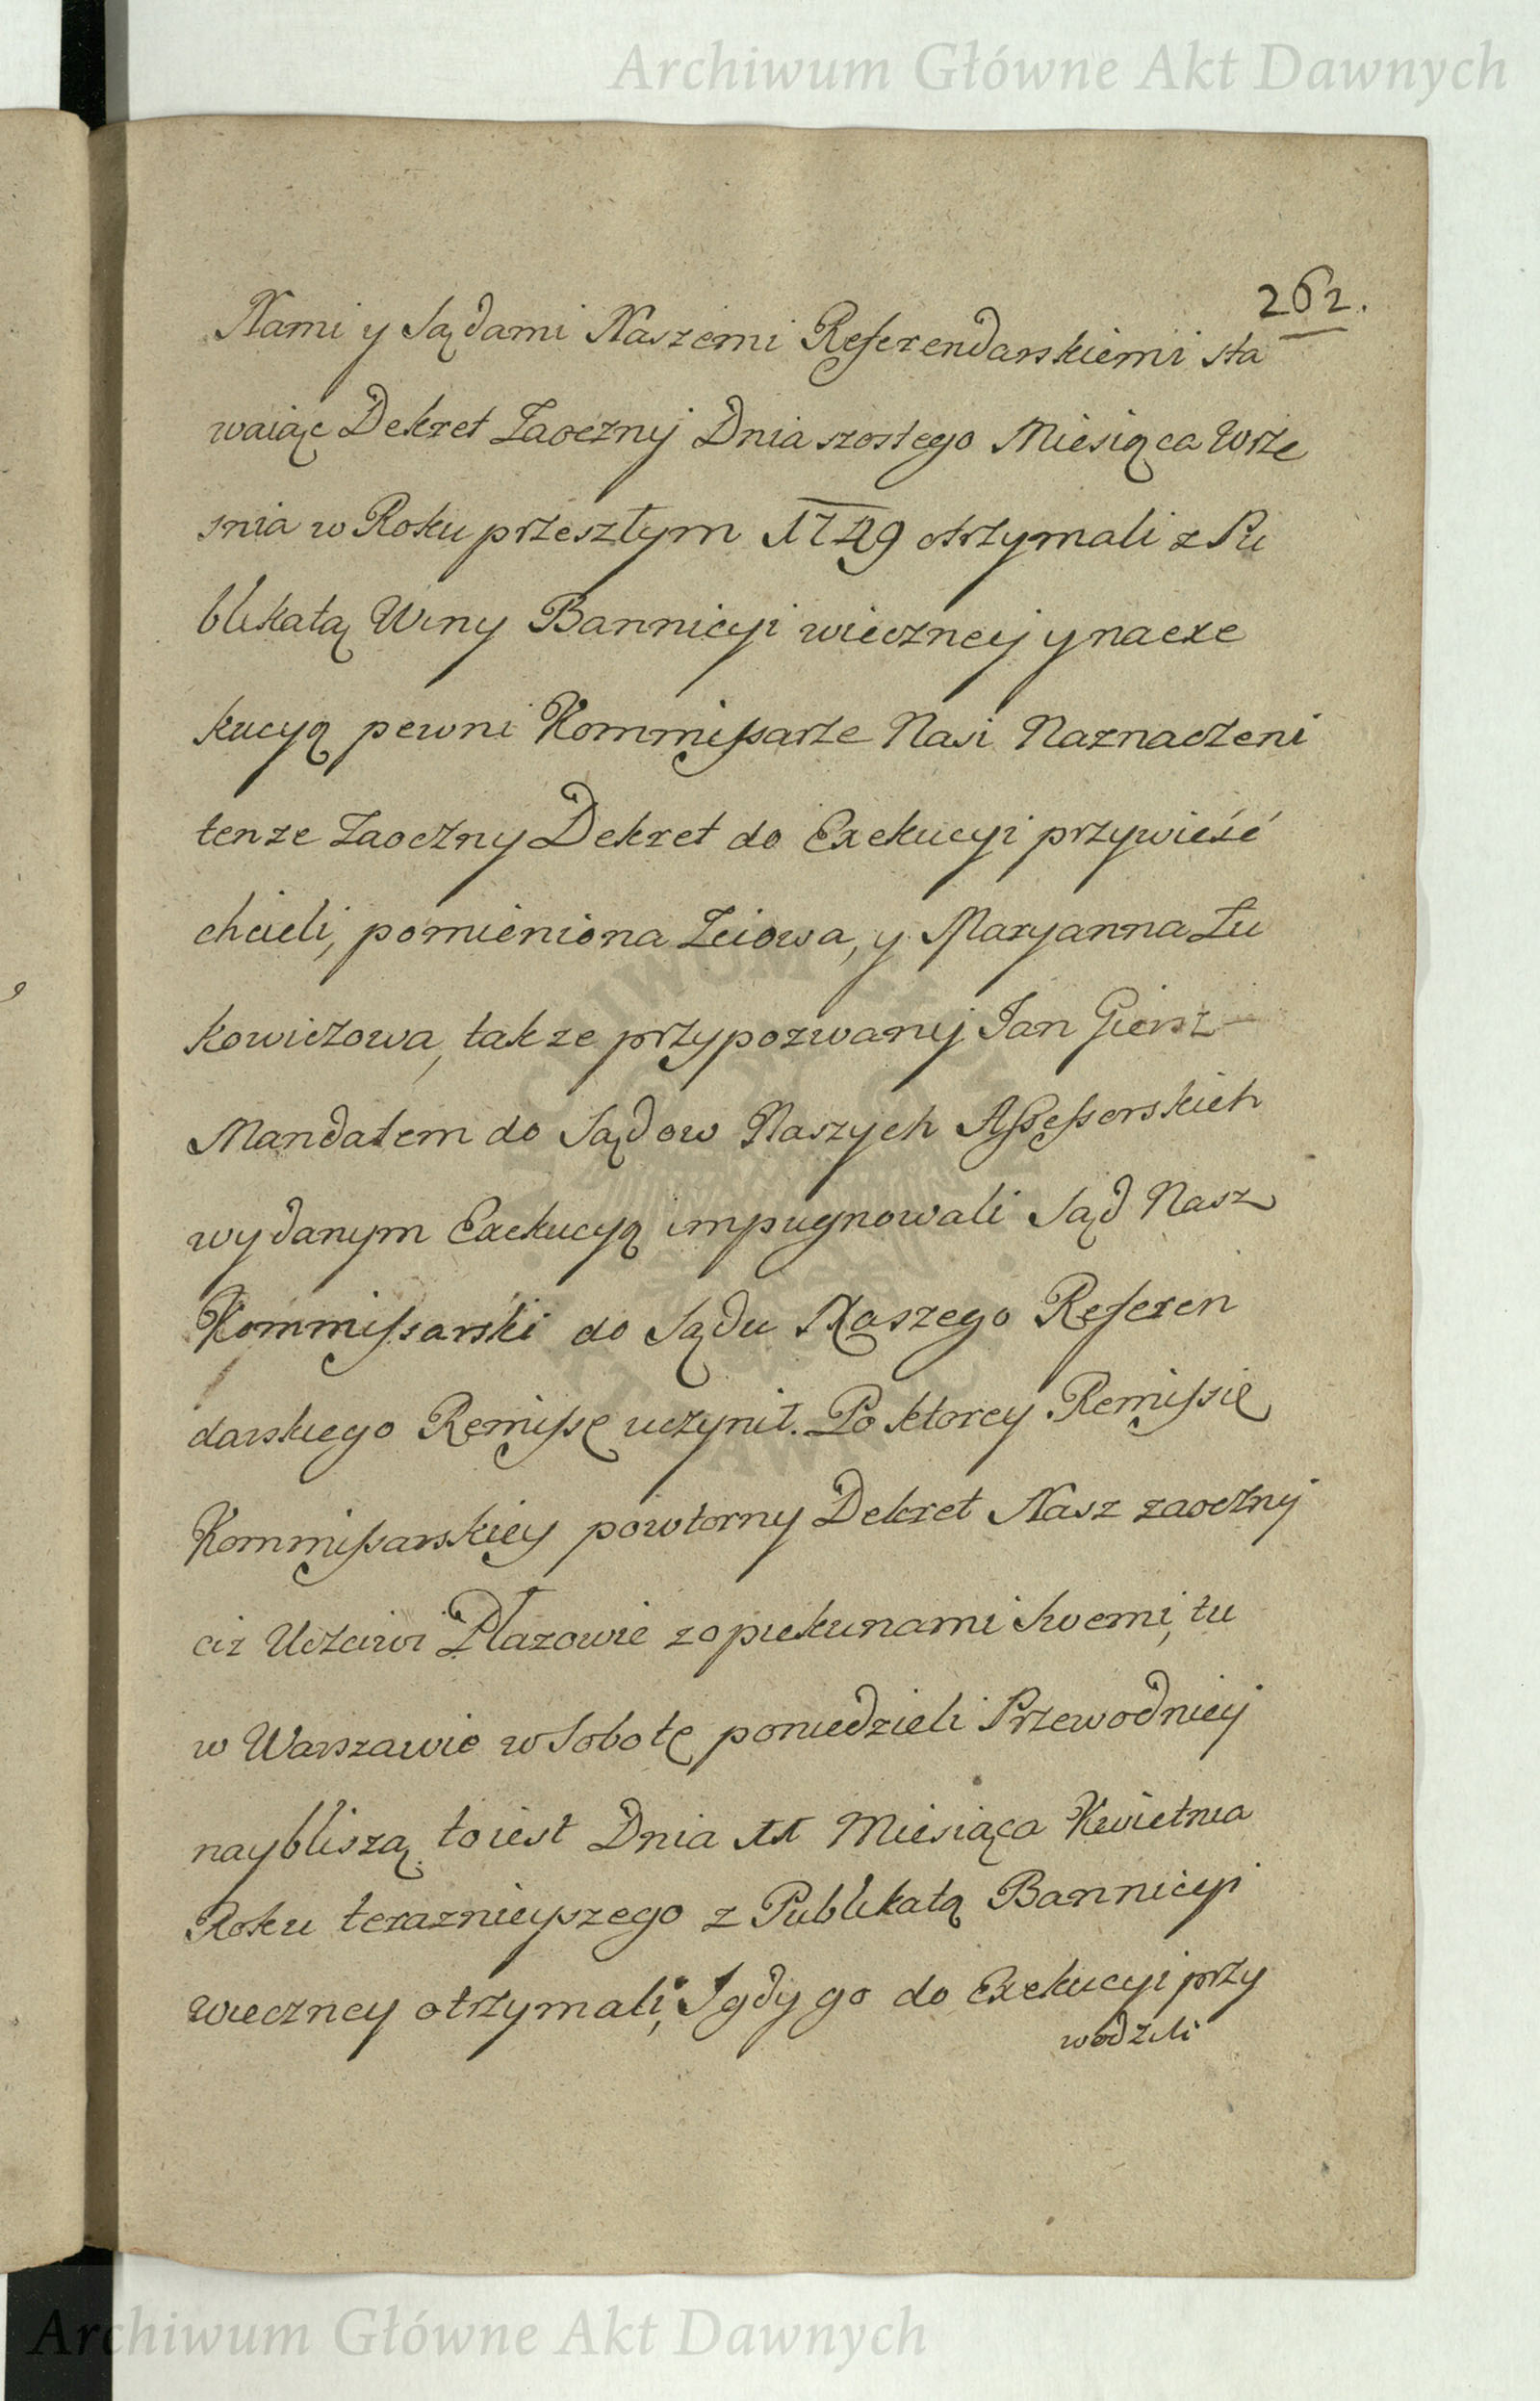 Archiwum Główne Akt Dawnych
262.
Nami y Sądami Naszemi Referendarskiemi sta
waiąc Dekret Zaoczny Dnia szostego Miesiąca Wrze
snia w Roku przeszłym 1749 otrzymali z Pu
blikatą Winy Bannicyi wieczney y na exe
kucyą pewni Kommissarze Nasi Naznaczeni
tenze Zaoczny Dekret do Exekucyi przywieść
chcieli, pomieniona Zeiowa, y Maryanna Łu
kowiczowa, takze przypozwany Jan Giersz
Mandatem do Sądow Naszych Assessorskich
wydanym Exekucyą impugnowali Sąd Nasz
Kommissarski do Sądu Naszego Referen
darskiego Remissę uczynił. Po ktorey Remissie
Kommissarskiey powtorny Dekret Nasz zaoczny
ciz Uczciwi Płazowie z opiekunami swemi, tu
w Warszawie w Sobotę po niedzieli Przewodniey
naybliszą to iest Dnia 11 Miesiąca Kwietnia
Roku teraznieyszego z Publikatą Bannicyi
wieczney otrzymali, I gdy go do Exekucyi przy
wodzili
Archiwum Główne Akt Dawnych